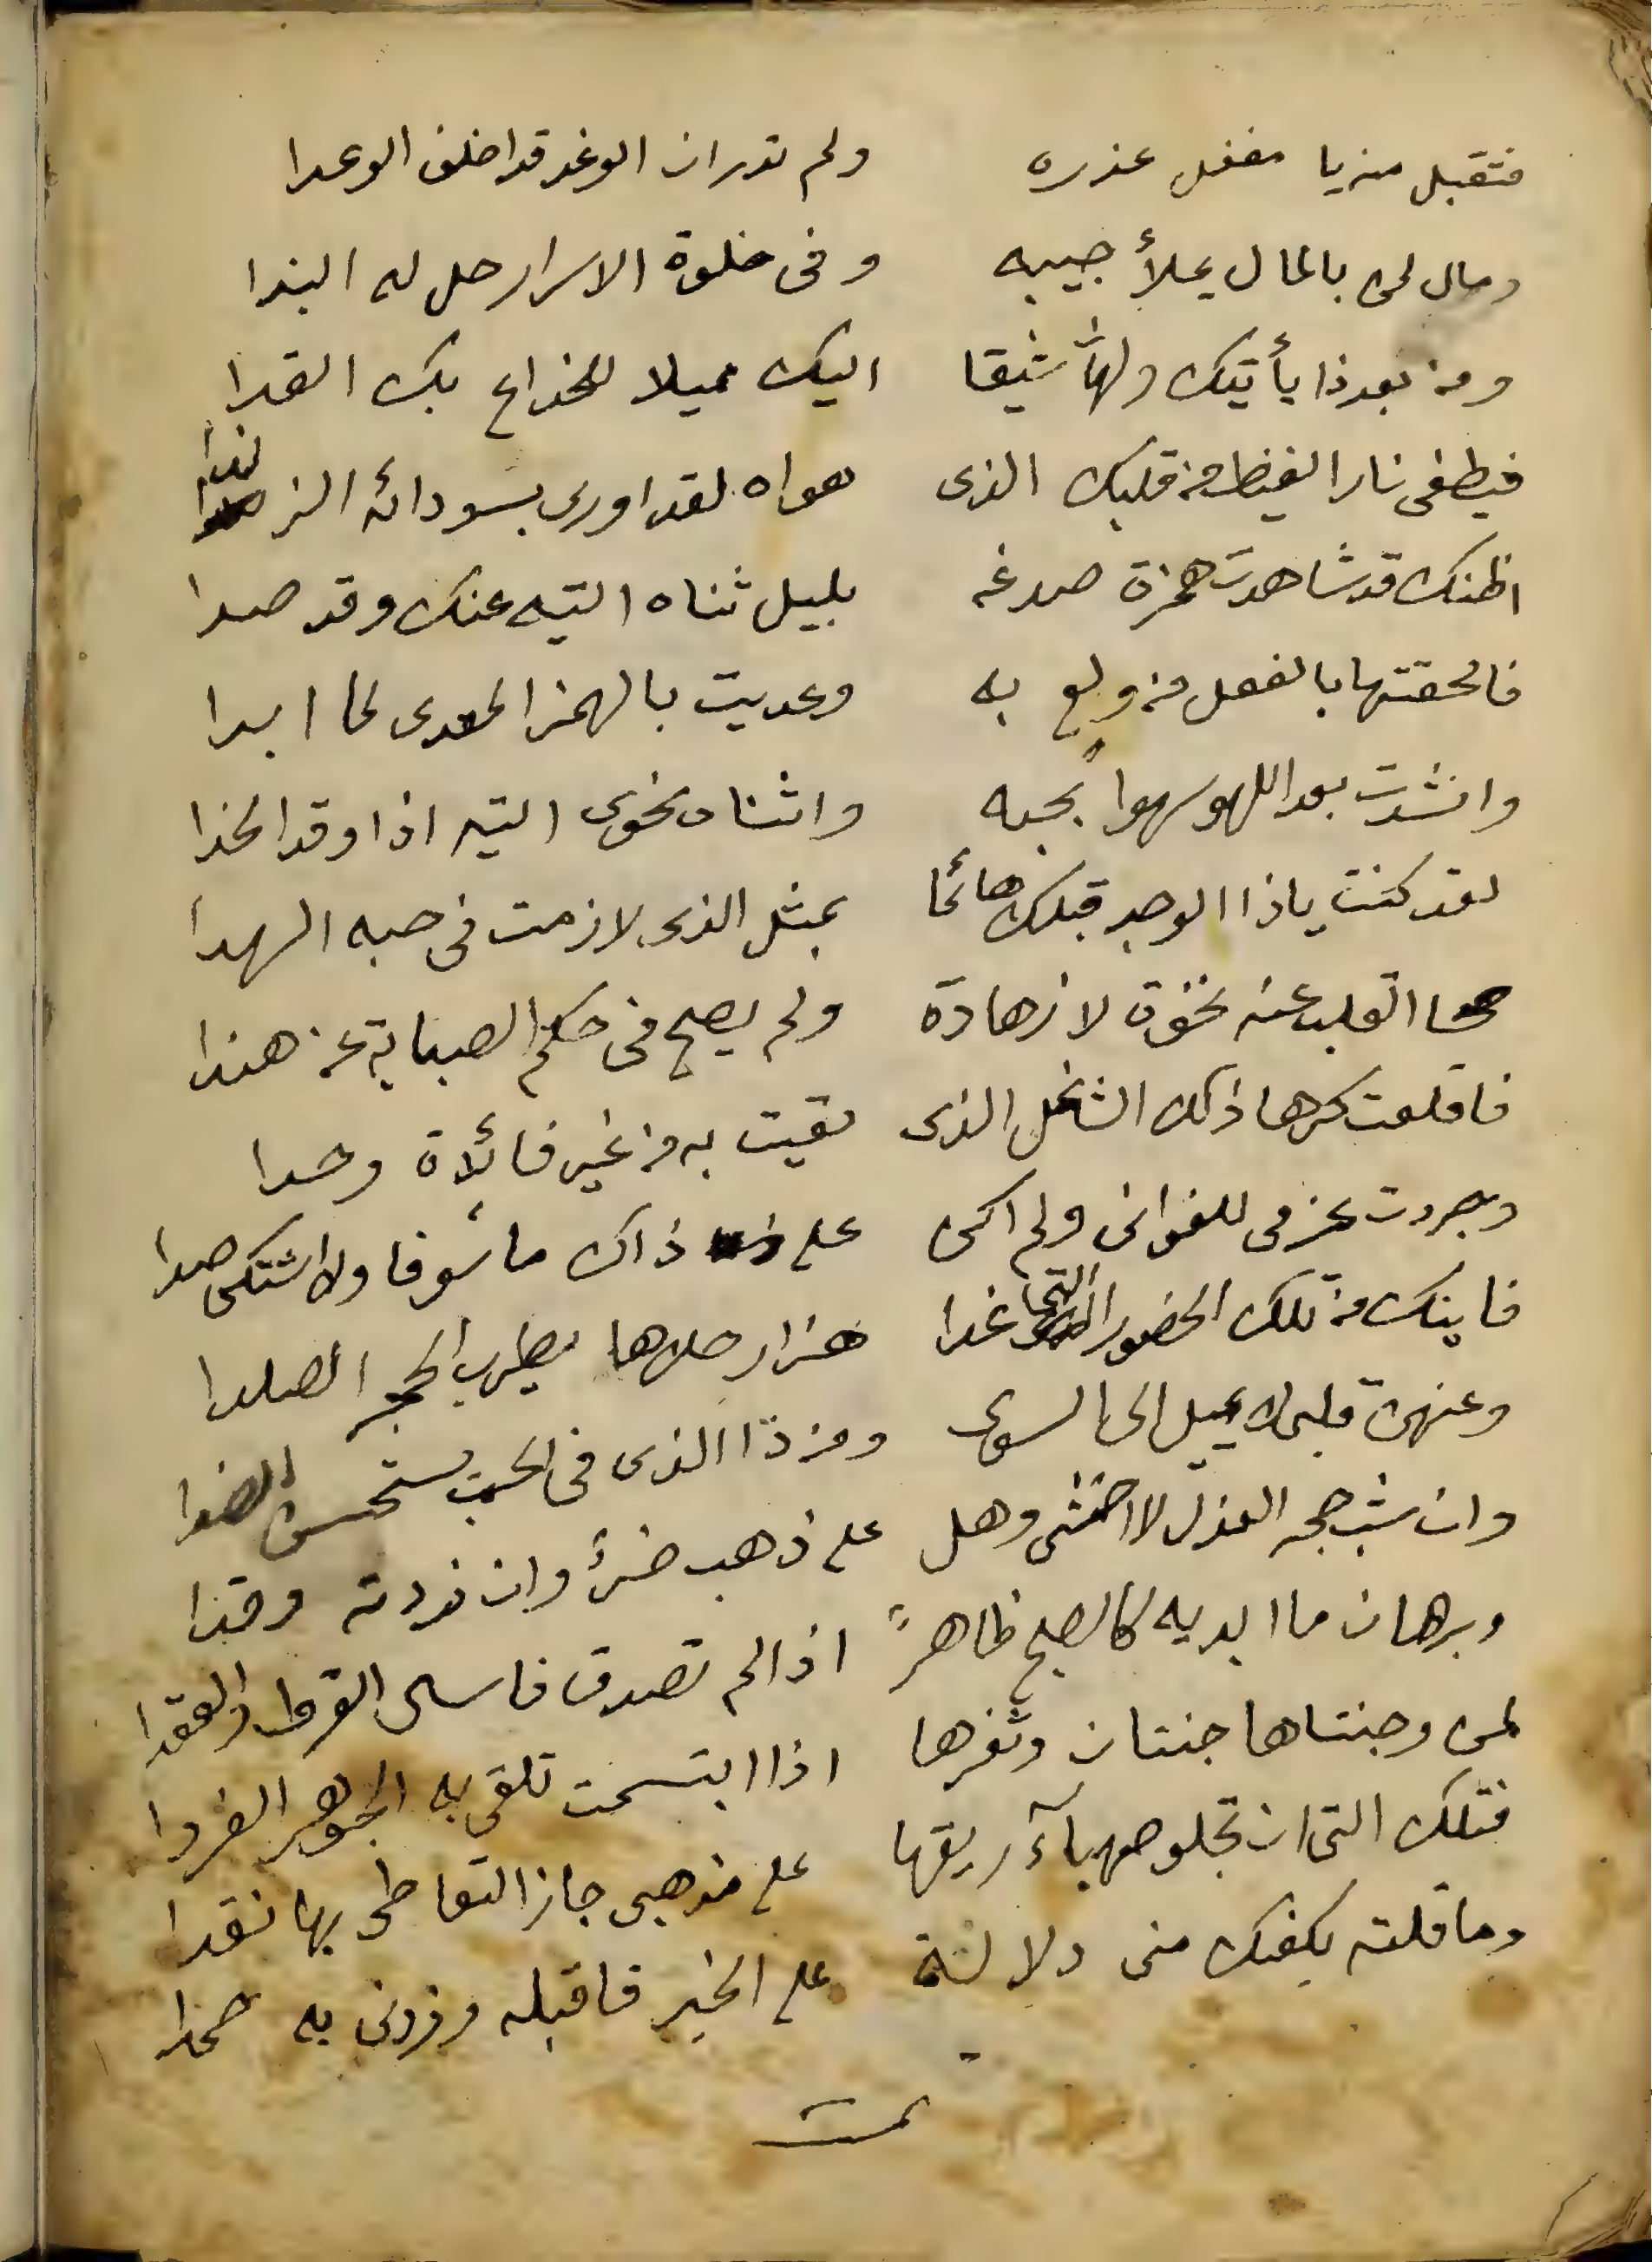 فتقبل منه يا مغفل عذره ولم تدر ان الوغد قد اخلف الوعدا
ومال لمن بالمال يملأ جيبه وفى خلوة الاسرار حل له البندا
ومن بعد ذا يأتيك ولهاً شيقا اليك مميلا للخداع بك القدا
فيطفى نار الغيظ من قلبك الذى هواه لقد اورى بسودائه الزندا
اظنك قد شاهدت همزة صدغه بليل ثناه التيه عنك وقد صدا
فالحقتها بالفعل من ولع به وعديت بالهمز المعدى لما ابدا
وانشدت بعد اللهو سهواً بحبه واثناه نحوى التيه اذ اوقد الخدا
لقد كنت ياذا الوجد قبلك هائما بمثل الذى لازمت فى حبه السهدا
صحا القلب عنه نخوة لا زهادة ولم يصح فى حكم الصبابة عن هندا
فاقلعت كرها ذلك الشاغل الذى لقيت به من غير فائدة وحدا
وجردت عزمى للغوانى ولم اكن على ذاك مأسوفا ولا اشتكى صدا
فاينك من تلك الخصور التى غدا هزار حلاها يطرب الحجر الصلدا
وعنهن قلبى لا يميل الى السوى ومن ذا الذى فى الحب يستحسن الضدا
وان شب جمر العذل لا اختشى وهل على ذهب ضرٌ وان زدته وقدا
وبرهان ما ابديه كالصبح ظاهرٌ اذا لم تصدق فاسال القرط والعقدا
لمن وجنتاها جنتان وثغرها اذا ابتسمت تلقى به الجوهر الفردا
فتلك التى ان تجلو صهبآء ريقها على مذهبى جاز التعاطى بها نقدا
وما قلته يكفيك منى دلالة على الخير فاقبله وزدنى به حمدا
تمت